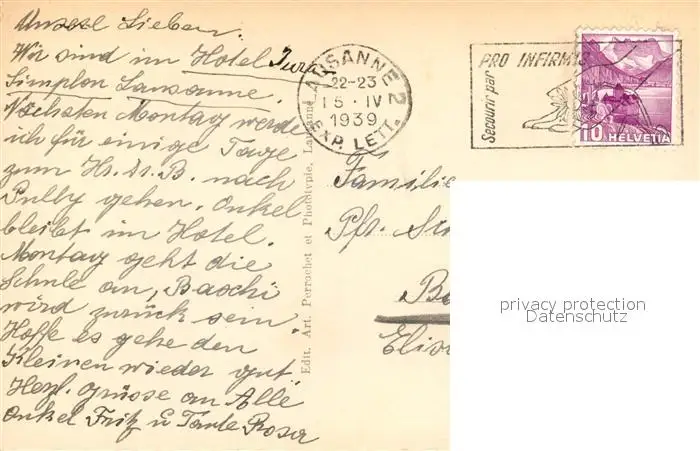 Unsere Lieben.
Wir sind im Hotel Jura
Simplon Lausanne.
Nächsten Montag werde
ich für einige Tage
zum Hr. Dr. B. nach
Pully gehen. Onkel
bleibt im Hotel.
Montag geht die
Schule an, Baschi
wird zurück sein.
Hoffe es gehe den
Kleinen wieder gut
Herzl. Grüsse an Alle
Onkel Fritz u Tante Rosa
Edit. Art. Perrochet et Phototypie, Lausanne
LAUSANNE 2
22-23
15·IV
1939
EXP. LETT.
PRO INFIRMIS
Secourir par
10 HELVETIA
Familie
Pfr.
privacy protection
Datenschutz